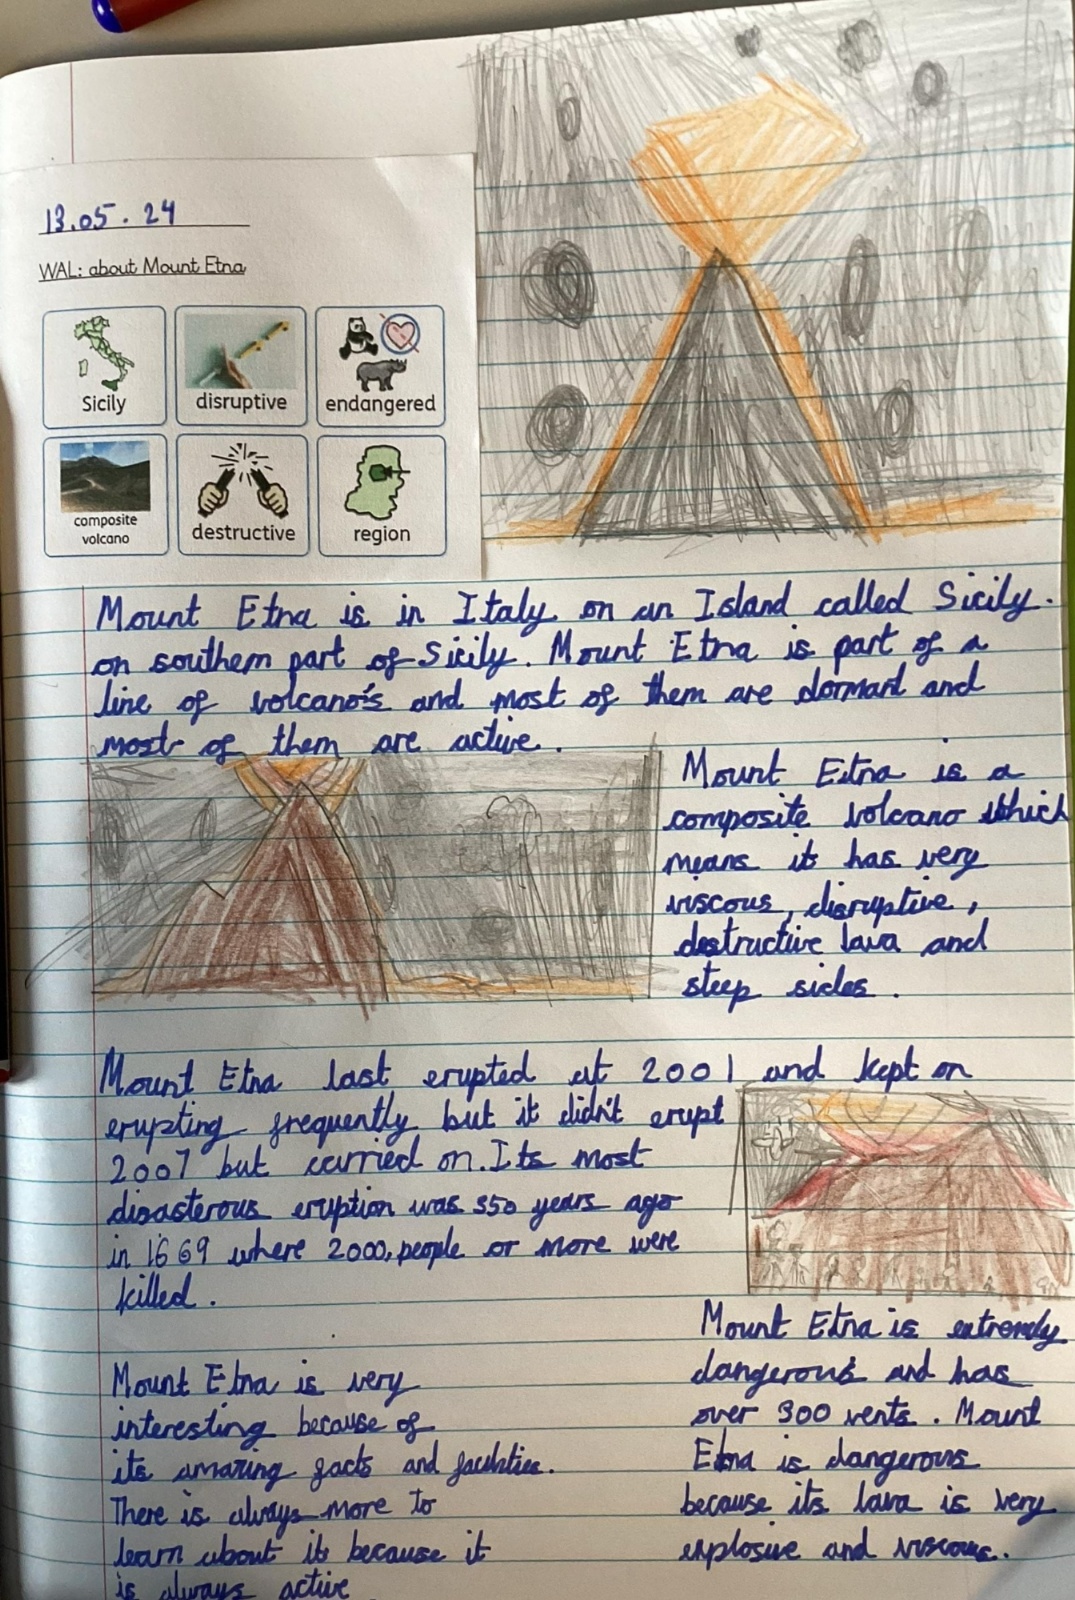 13.05.24
WAL: about Mount Etna
Sicily
disruptive
endangered
composite
volcano
destructive
region
Mount Etna is in Italy on an Island called Sicily.
on southern part of Sicily. Mount Etna is part of a
line of volcano's and most of them are dormant and
most of them are active.
Mount Etna is a
composite volcano which
means it has very
viscous, disruptive,
destructive lava and
steep sides.
Mount Etna last erupted at 2001 and kept on
erupting frequently but it didn't erupt
2007 but carried on. Its most
disasterous eruption was 350 years ago
in 1669 where 2000, people or more were
killed.
Mount Etna is extremly
dangerous and has
over 300 vents. Mount
Etna is dangerous
because its lava is very
explosive and viscous.
Mount Etna is very
interesting because of
its amazing facts and facilities.
There is always more to
learn about it because it
is always active